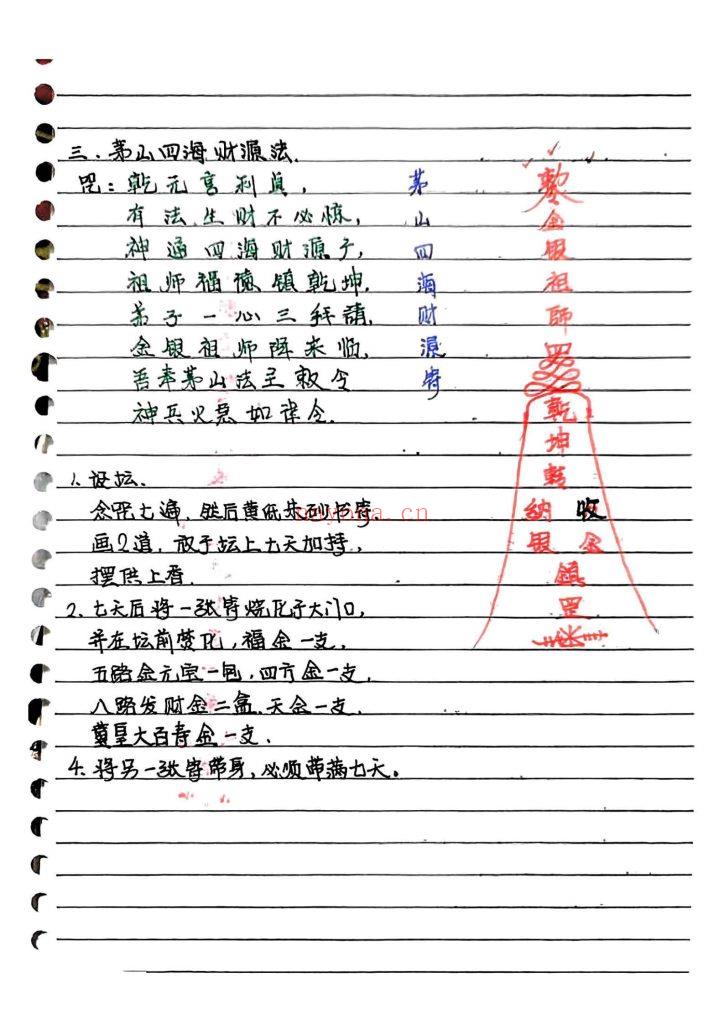 三、茅山四海财源法.
咒：乾元亨利貞，
有法生财不必炼，
神通四海财源子，
祖师福德镇乾坤.
弟子一心三拜請，
金银祖师降来临，
吾奉茅山法主敕令
神兵火急如律令.
茅山四海财源符
敕令
金
银
祖
師
罡
乾
坤
乾
納 收
银 金
鎮
罡
1. 设坛.
念咒七遍，然后黄纸朱砂书符
画2道，放于坛上七天加持，
摆供上香.
2. 七天后将一张符烧化于大门口，
并在坛前焚化，福金一支.
五路金元宝一包，四方金一支，
八路发财金二盒.天金一支.
大百寿金一支.
4. 将另一张符带身，必须带满七天。